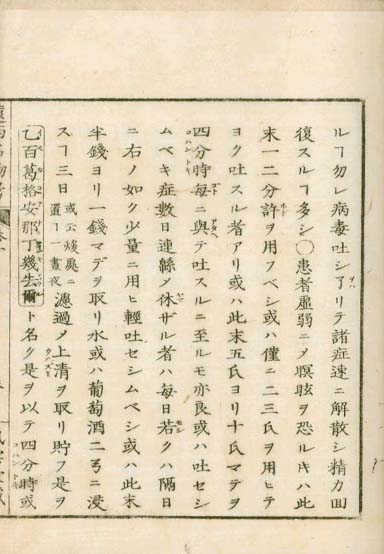 ルヿ勿レ病毒吐シ了リテ諸症速ニ解散シ精力囬
復スルヿ多シ〇患者虚弱ニメ瞑眩ヲ恐ルキハ此
末一二分許ヲ用フベシ或ハ僅ニ二三氏ヲ用ヒテ
ヨク吐スル者アリ或ハ此末五氏ヨリ十氏マデヲ
四分時毎ニ與テ吐スルニ至ルモ亦良或ハ吐セシ
ムベキ症數日連緜メ休ザル者ハ每日若クハ隔日
ニ右ノ如ク少量ニ用ヒ輕吐セシムベシ或ハ此末
半錢ヨリ一錢マデヲ取リ水或ハ葡萄酒二弓ニ浸
スヿ三日或云煖處ニ置ヿ一晝夜濾過メ上清ヲ取リ貯フ是ヲ
乙百葛格安那丁幾生爾ト名ク是ヲ以テ四分時或